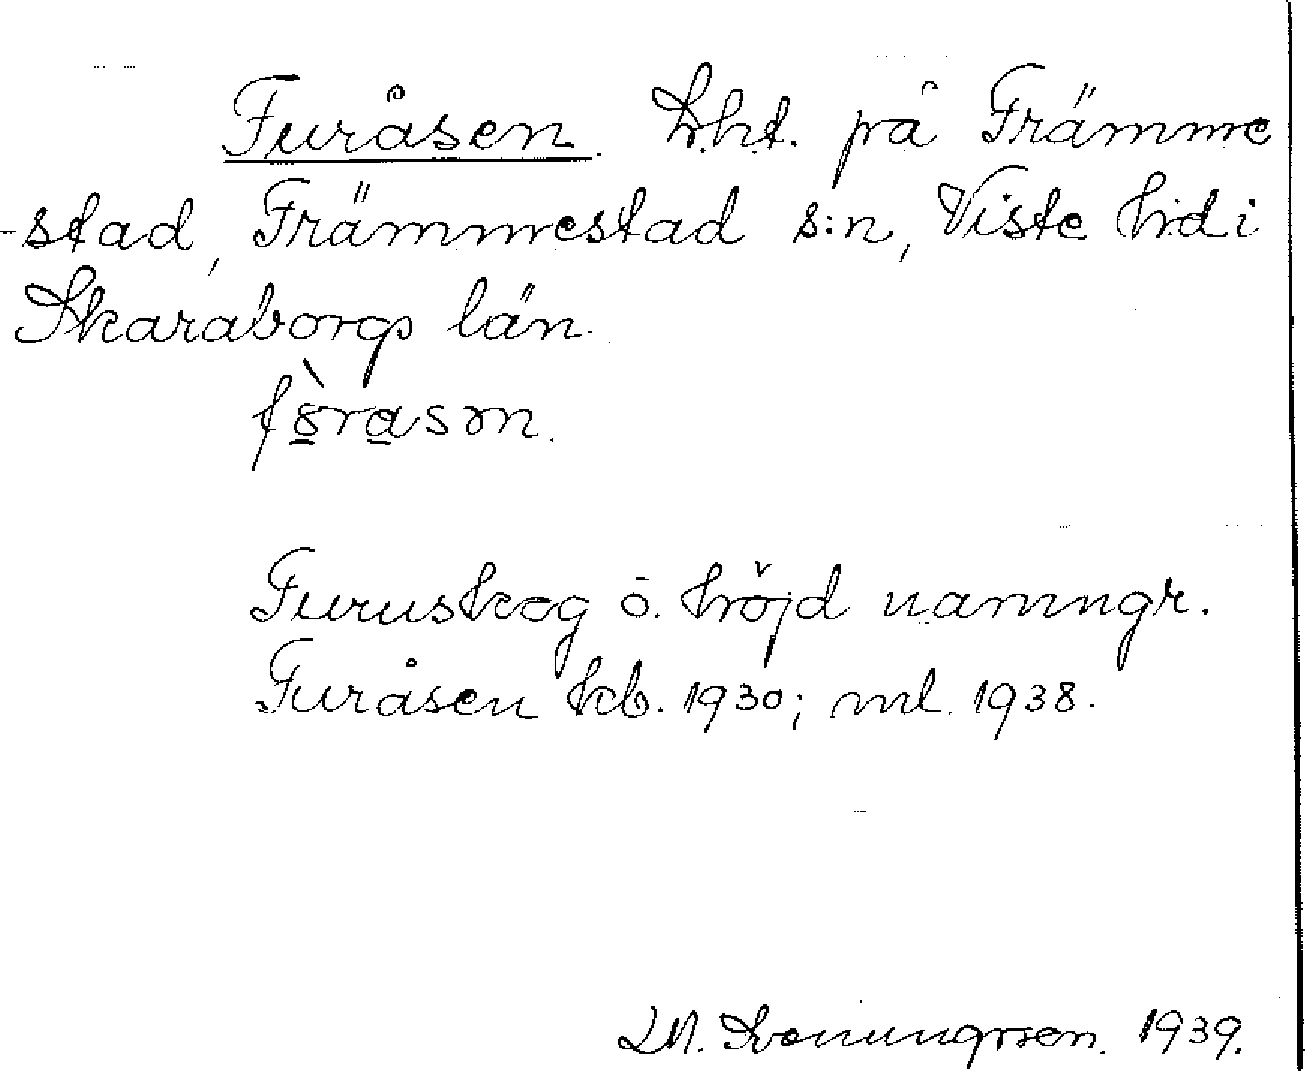 Furåsen. Lht. på Främme
-stad, Främmestad s:n, Viste hd i
Skaraborgs län.
Furuskog o. höjd namngr.
Furåsen kb. 1930; ml. 1938.
1939.